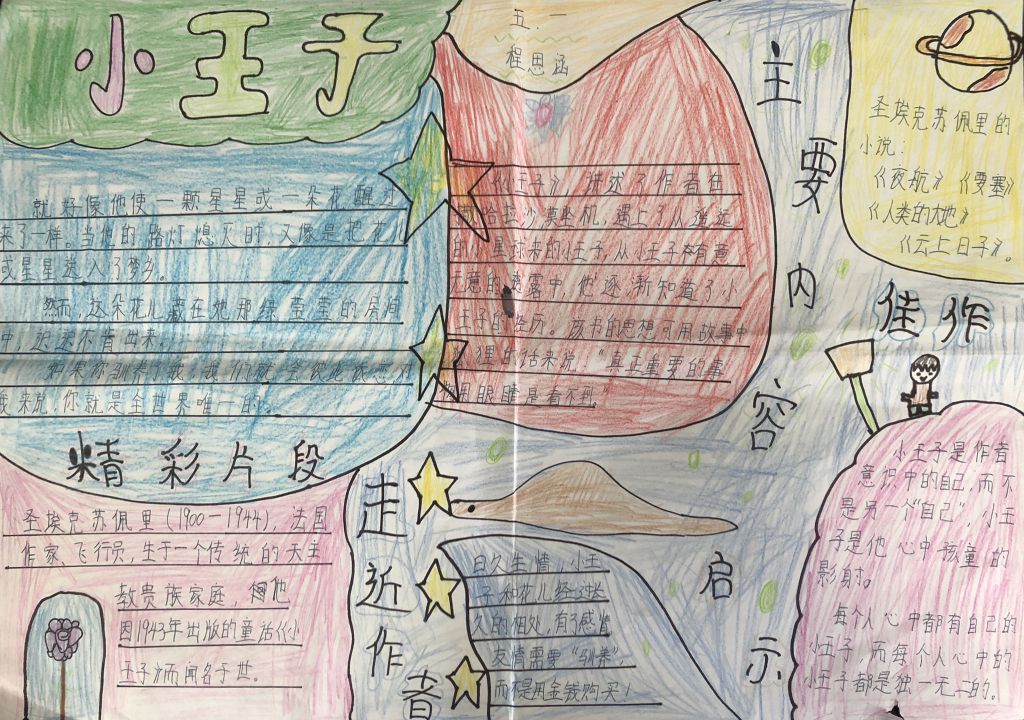 小王子
五.一
程思涵
就好像他使一颗星星或一朵花醒过
来了一样。当他的路灯熄灭时,又像是把花儿
或星星送入了梦乡。
然而,这朵花儿藏在她那绿莹莹的房间
中,迟迟不肯出来。
如果你驯养了我,我们就会彼此依恋,对
我来说,你就是全世界唯一的。
精彩片段
《小王子》讲述了作者在
撒哈拉沙漠坐机,遇上了从遥远
的小星球来的小王子,从小王子有意
无意的透露中,他逐渐知道了小
王子的经历。该书的思想可用故事中
狐狸的话来说:“真正重要的事
眼睛是看不到
主要内容
圣埃克苏佩里的
小说:
《夜航》《要塞》
《人类的大地》
《云上日子》。
佳作
圣埃克苏佩里(1900—1944),法国
作家、飞行员,生于一个传统的天主
教贵族家庭,他
因1943年出版的童话《小
王子》而闻名于世。
走近作者
日久生情,小王
子和花儿经过长
久的相处,有了感情
友情需要“驯养”,
而不是用金钱购买!
启示
小王子是作者
意识中的自己,而不
是另一个“自己”,小王
子是他心中孩童的
影射。
每个人心中都有自己的
小王子,而每个人心中的
小王子都是独一无二的。